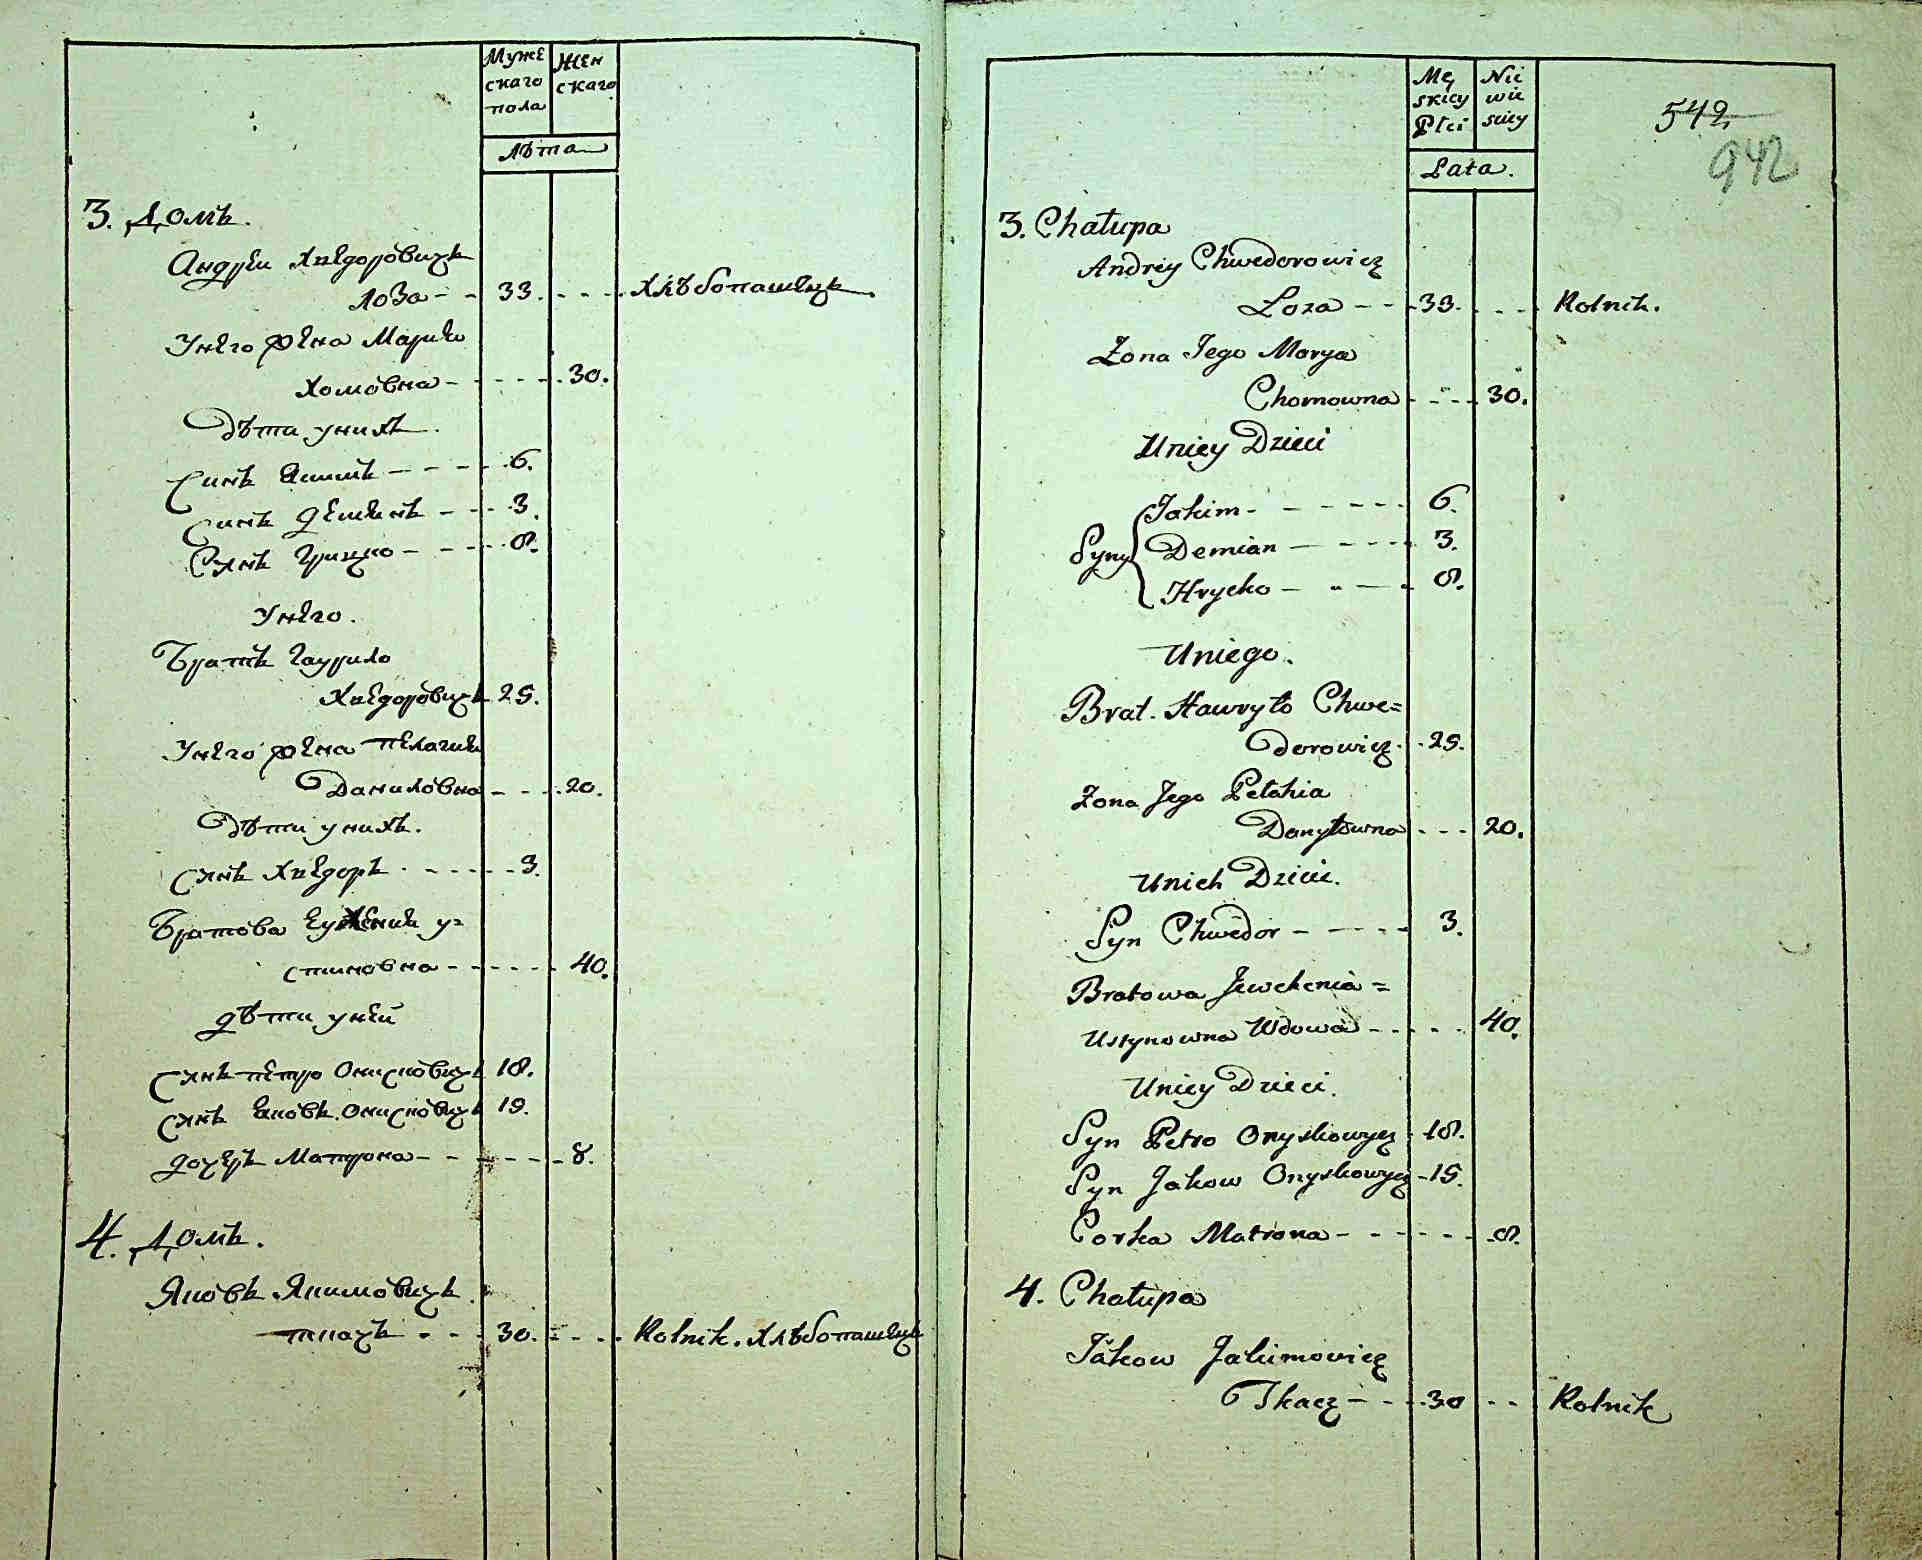 Муже
скаго
пола
Жен
скаго
Лѣта
3. Домъ.
Андреи Хведоровичъ
Лоза - - 33. - - - - Хлѣбопашецъ.
Унего жена Мария
Хомовна - - - - - 30.
Дѣти унихъ.
Синъ Якимъ - - - - 6.
Синъ Демянъ - - - 3.
Синъ Грицко - - - - 8.
Унего.
Братъ Гаурило
Хведоровичъ 25.
Унего жена Пелагия
Даниловна - - - 20.
Дѣти унихъ.
Синъ Хведоръ - - - - - 3.
Братова Еужения у=
стиновна - - - - - 40.
Дѣти уней
Синъ Петро Онисковичъ 18.
Синъ Яковъ Онисковичъ 15.
Дочеръ Матрона - - - - - - 8.
4. Домъ.
Яковъ Якимовичъ
Ткачъ - - - 30. - - - - Rolnik. Хлѣбопашецъ
Mę
skiey
Płci
Nie
wie
sciey
Lata.
542
942
3. Chałupa
Andrey Chwedorowicz
Łoza - - - 33. - - - Rolnik.
Żona Jego Marya
Chomowna - - - - 30.
Uniey Dzieci
Syny
Jakim - - - - - - 6.
Demian - - - - - 3.
Hrycko - - - - 8.
Uniego.
Brat. Hawryło Chwe=
dorowicz - - 25.
Żona Jego Pelahia
Danyłowna - - - 20.
Unich Dzieci.
Syn Chwedor - - - - - 3.
Bratowa Jewchenia =
Ustynowna Wdowa - - - - - 40.
Uniey Dzieci.
Syn Petro Onyskowycz - 18.
Syn Jakow Onyskowycz - 15.
Corka Matrona - - - - - - 8.
4. Chałupa
Jakow Jakimowicz
Tkacz - - - 30 - - Rolnik